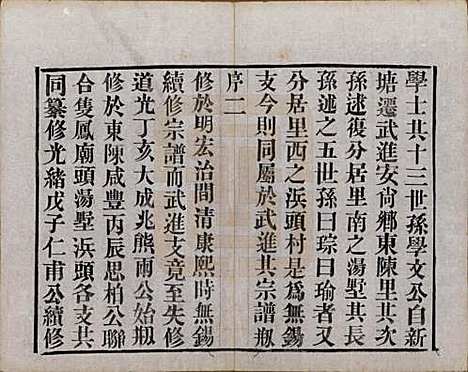 學士其十三世孫學文公自新
塘遷武進安尚鄉東陳里其次
孫逑復分居里南之湯墅其長
孫述之五世孫曰琮曰瑜者又
分居里西之浜頭村是為無錫
支今則同屬於武進其宗譜瓶
序二
修於明宏治間清康熙時無錫
續修宗譜而武進支竟至失修
道光丁亥大成兆熊雨公始瓶
修於東陳咸豐丙辰思柏公聯
合隻鳳廟頭湯墅浜頭各支共
同纂修光緒戊子仁甫公續修